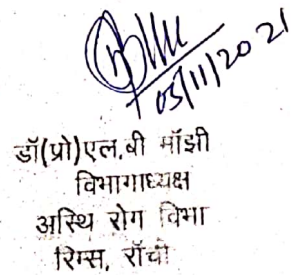 05/11/2021
डॉ(प्रो)एल.बी मॉझी
विभागाध्यक्ष
अस्थि रोग विभा
रिम्स, रॉची